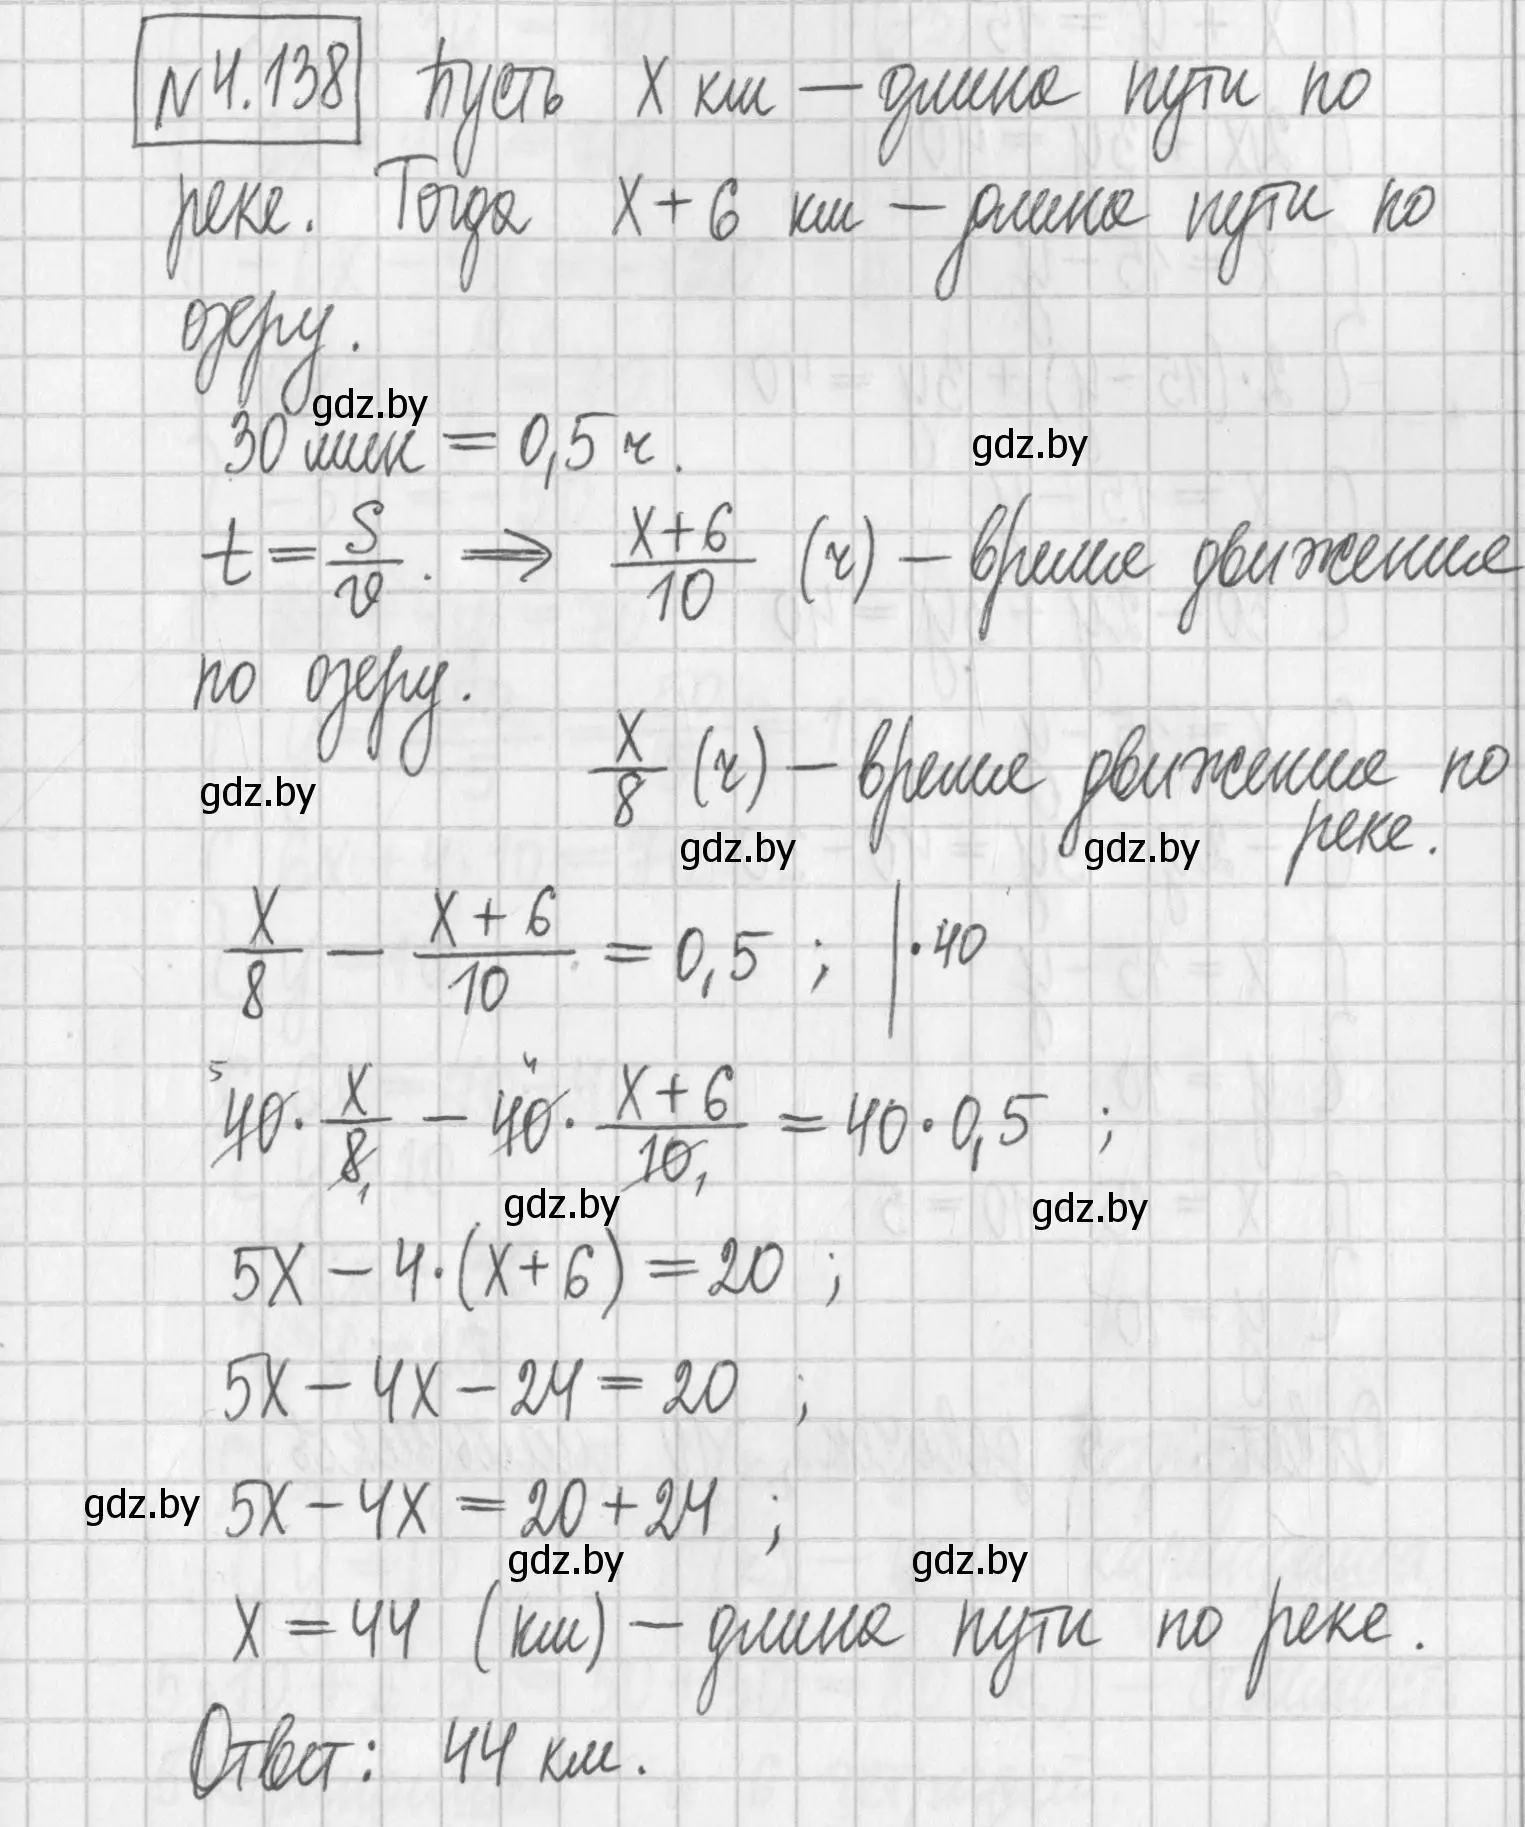 №4.138 Пусть x км — длина пути по
реке. Тогда x+6 км — длина пути по
озеру.
gdz.by
30 мин = 0,5 ч.
gdz.by
t = S/v. ⇒ (x+6)/10 (ч) — время движения
по озеру.
x/8 (ч) — время движения по
реке.
gdz.by
gdz.by gdz.by
x/8 − (x+6)/10 = 0,5 ; | · 40
⁵40 · x/8₁ − ⁴40 · (x+6)/10₁ = 40 · 0,5 ;
gdz.by gdz.by
5x − 4·(x+6) = 20 ;
5x − 4x − 24 = 20 ;
gdz.by
5x − 4x = 20 + 24 ;
gdz.by gdz.by
x = 44 (км) — длина пути по реке.
Ответ: 44 км.